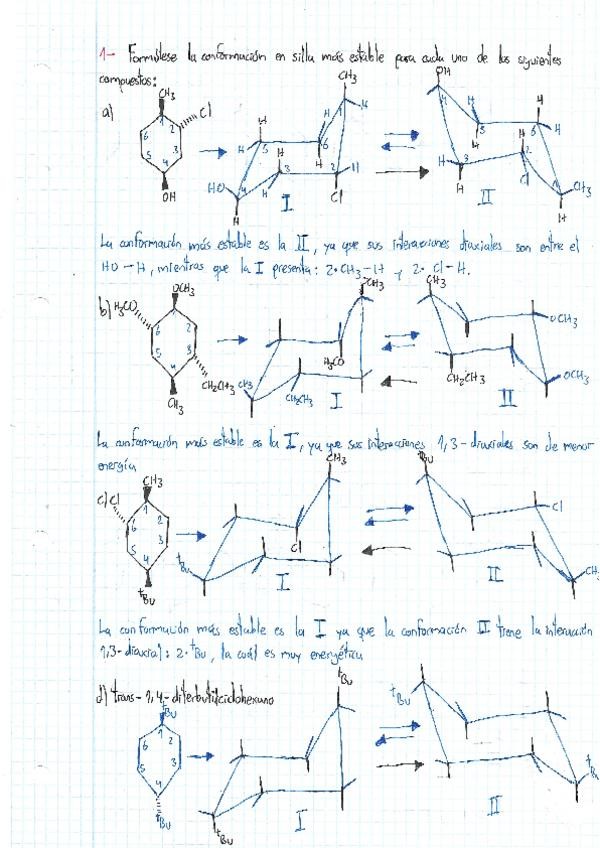 1- Formúlese la conformación en silla más estable para cada uno de los siguientes
compuestos:
a) CH₃ Cl OH 1 2 3 4 5 6
CH₃ H H H H H H H Cl HO H 1 2 3 4 5 6 I
OH H H H H H H Cl CH₃ H 1 2 3 4 5 6 II
La conformación más estable es la II, ya que sus interacciones diaxiales son entre el
HO-H, mientras que la I presenta: 2·CH₃-H y 2·Cl-H.
b) H₃CO OCH₃ CH₂CH₃ CH₃ 1 2 3 4 6
OCH₃ H₃CO CH₂CH₃ CH₃ I
CH₃ OCH₃ OCH₃ CH₂CH₃ II
La conformación más estable es la I, ya que sus interacciones 1,3-diaxiales son de menor
energía
c) Cl CH₃ ᵗBu 1 2 3 4 5 6
CH₃ Cl ᵗBu I
ᵗBu Cl CH₃ II
La conformación más estable es la I ya que la conformación II tiene la interacción
1,3-diaxial: 2·ᵗBu, la cuál es muy energética
d) trans-1,4-diterbutilciclohexano
ᵗBu 1 2 3 4 5 6 ᵗBu
ᵗBu ᵗBu I
ᵗBu ᵗBu II